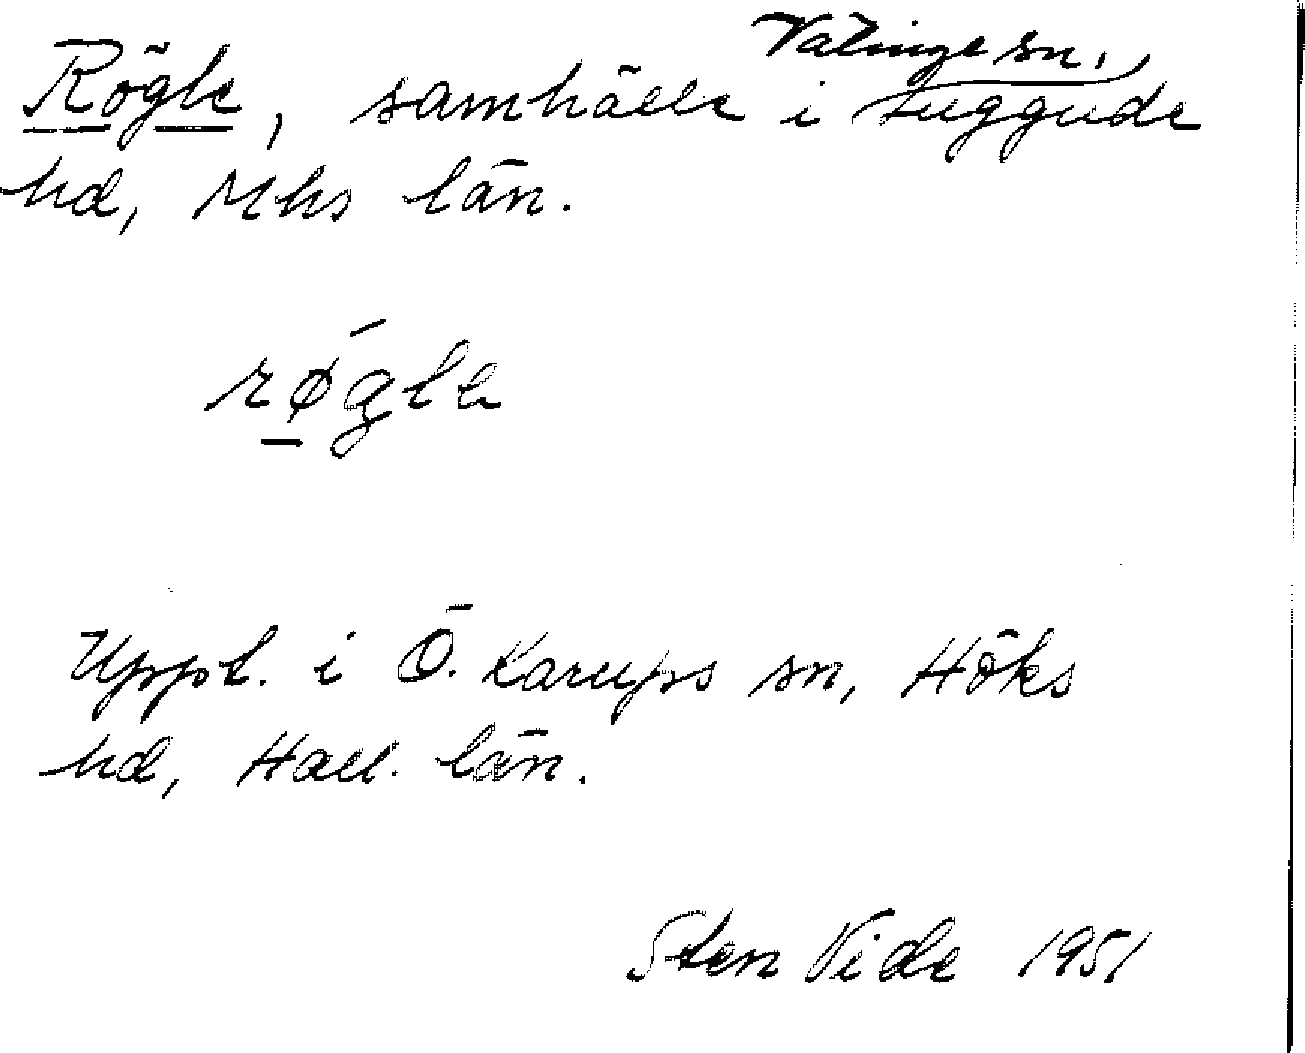 Välinge sn,
Rögle, samhälle i Luggude
hd, Mhs län.
røgle
Uppt. i Ö. Karups sn, Höks
hd, Hall. län.
Sten Vide 1951